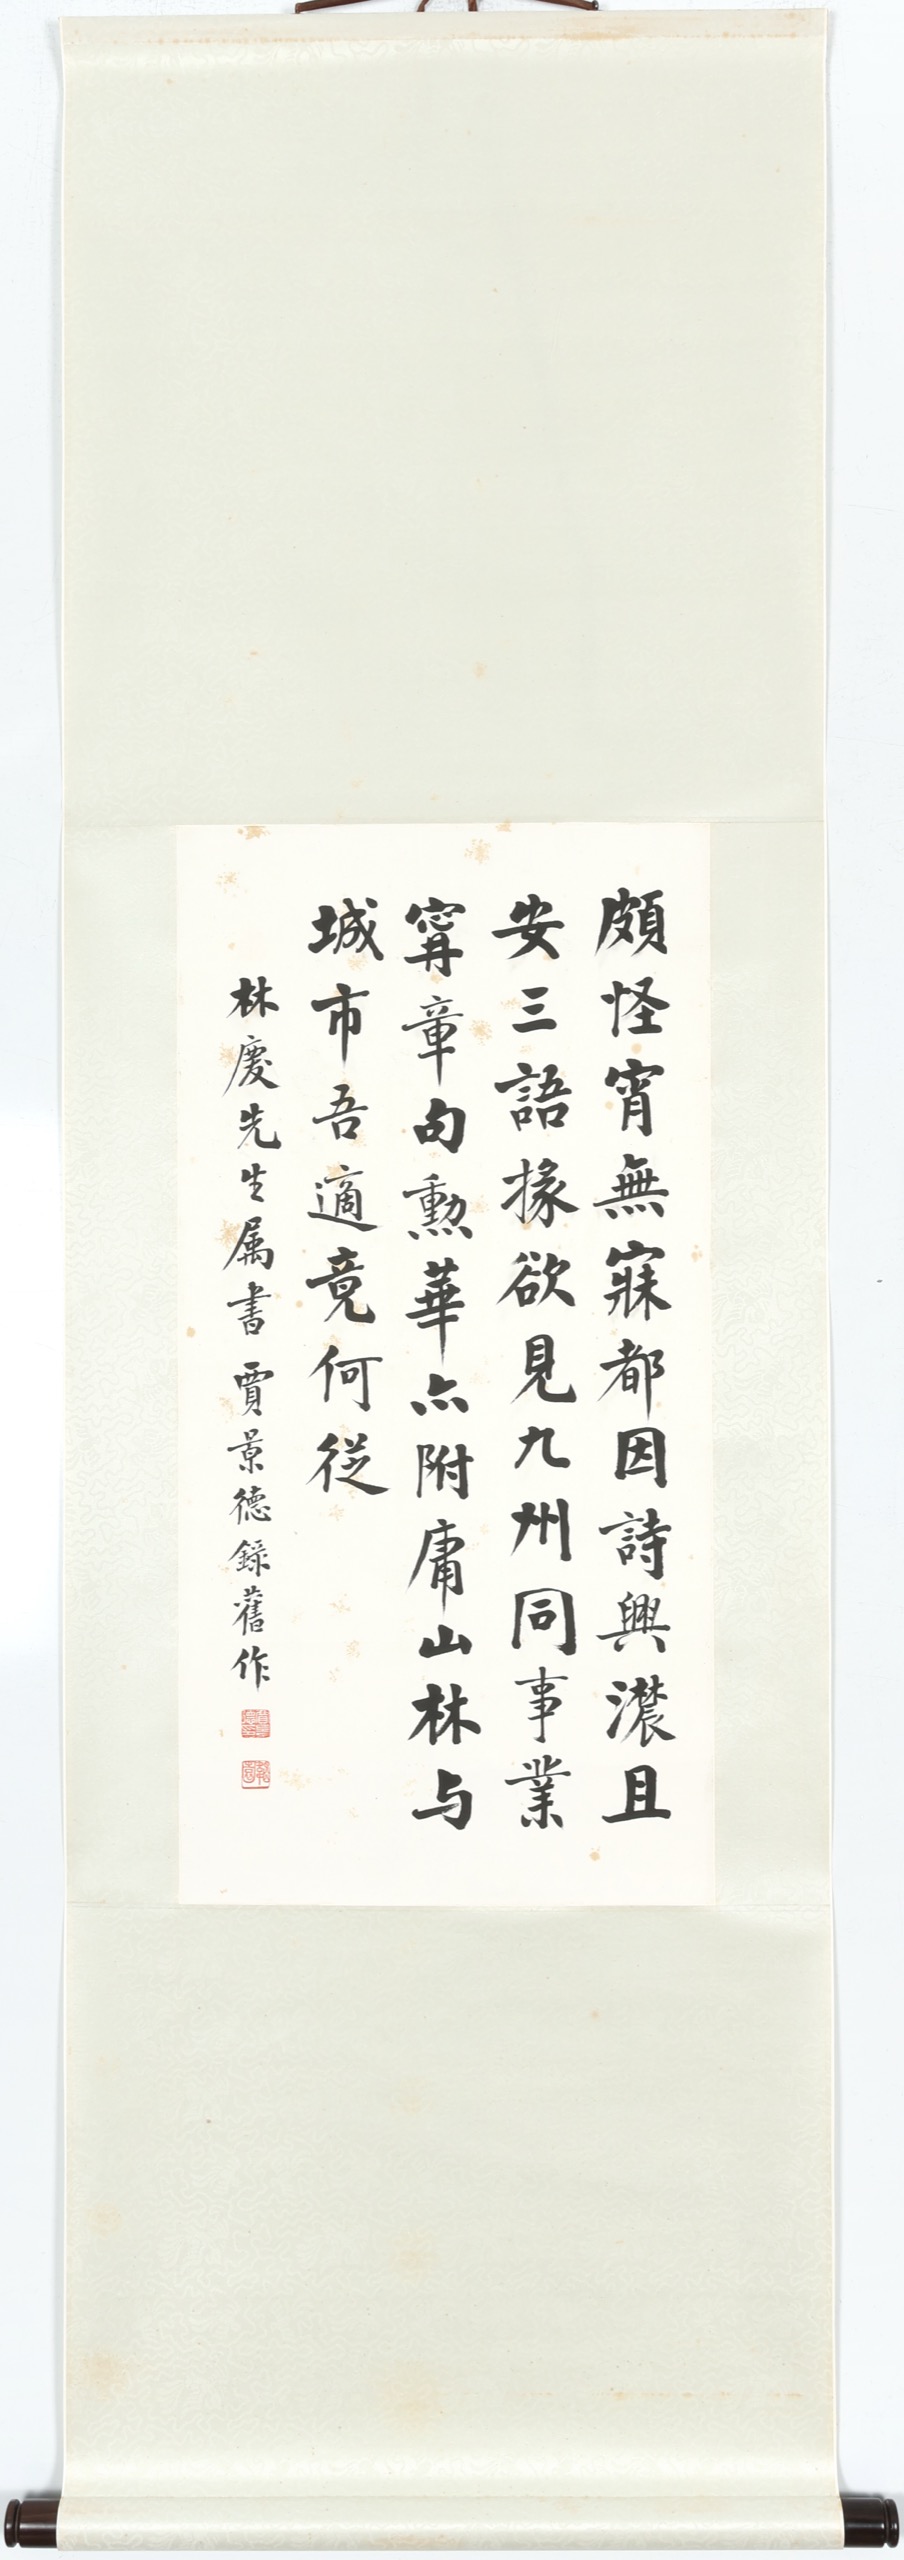 頗怪宵無寐都因詩興濃且
安三語掾欲見九州同事業
寗章句勲華亦附庸山林与
城市吾適竟何從
林慶先生属書 賈景德錄舊作